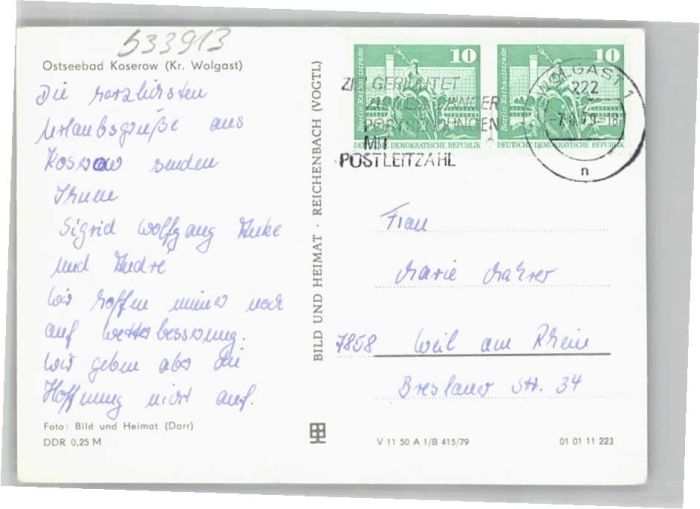 533913
Ostseebad Koserow (Kr. Wolgast)
Die herzlichsten
Urlaubsgrüße aus
Koserow senden
Ihnen
Sigrid Wolfgang Anke
und André
Wir hoffen immer noch
auf Wetterbesserung.
Wir geben aber die
Hoffnung nicht auf.
Foto: Bild und Heimat (Darr)
DDR 0,25 M
BILD UND HEIMAT · REICHENBACH (VOGTL)
10
10
Berlin, Rathausstraße
DEUTSCHE DEMOKRATISCHE REPUBLIK
DEUTSCHE DEMOKRATISCHE REPUBLIK
MIT
POSTLEITZAHL
WOLGAST 1
222
n
Frau
Marie
7858 Weil am Rhein
Breslauer Str. 34
V 11 50 A 1/B 415/79
01 01 11 223